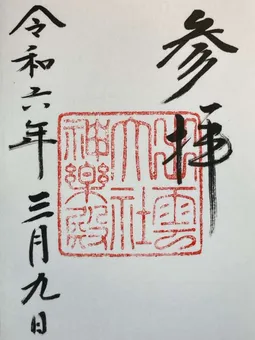 参拝
出雲
大社
神樂殿
令和六年三月九日